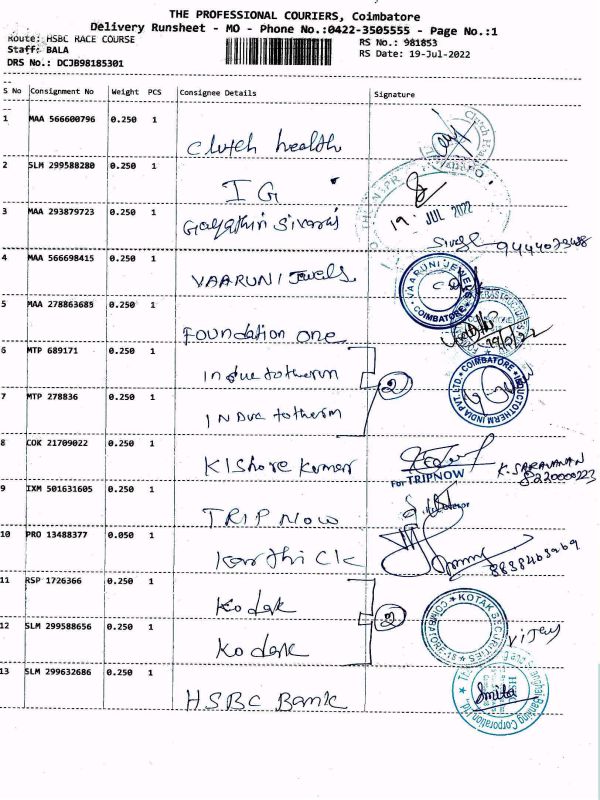 THE PROFESSIONAL COURIERS, Coimbatore
Delivery Runsheet - MO - Phone No.:0422-3505555 - Page No.:1
Route: HSBC RACE COURSE
RS No.: 981853
Staff: BALA
RS Date: 19-Jul-2022
DRS No.: DCJB98185301
S No Consignment No Weight PCS Consignee Details Signature
1 MAA 566600796 0.250 1
Clutch health
2 SLM 299588280 0.250 1
IG
19 JUL 2022
3 MAA 293879723 0.250 1
Gayathiri Sivaraj
4 MAA 566698415 0.250 1
VAARUNI Jewels
VAARUNI JEWELS
COIMBATORE
5 MAA 278863685 0.250 1
Foundation one
6 MTP 689171 0.250 1
Inductotherm
2
COIMBATORE
INDUCTOTHERM INDIA PVT. LTD.
7 MTP 278836 0.250 1
INDuctotherm
8 COK 21709022 0.250 1
KIShore Kumar
For TRIPNOW
K. SARAVANAN
8220000223
9 IXM 501631605 0.250 1
TRIP NOW
10 PRO 13488377 0.050 1
Karthi CK
11 RSP 1726366 0.250 1
Kodak
2
KOTAK SECURITIES
COIMBATORE
12 SLM 299588656 0.250 1
Kodak
Vijay
13 SLM 299632686 0.250 1
HSBC Bank
Smita
Banking Corporation Ltd.